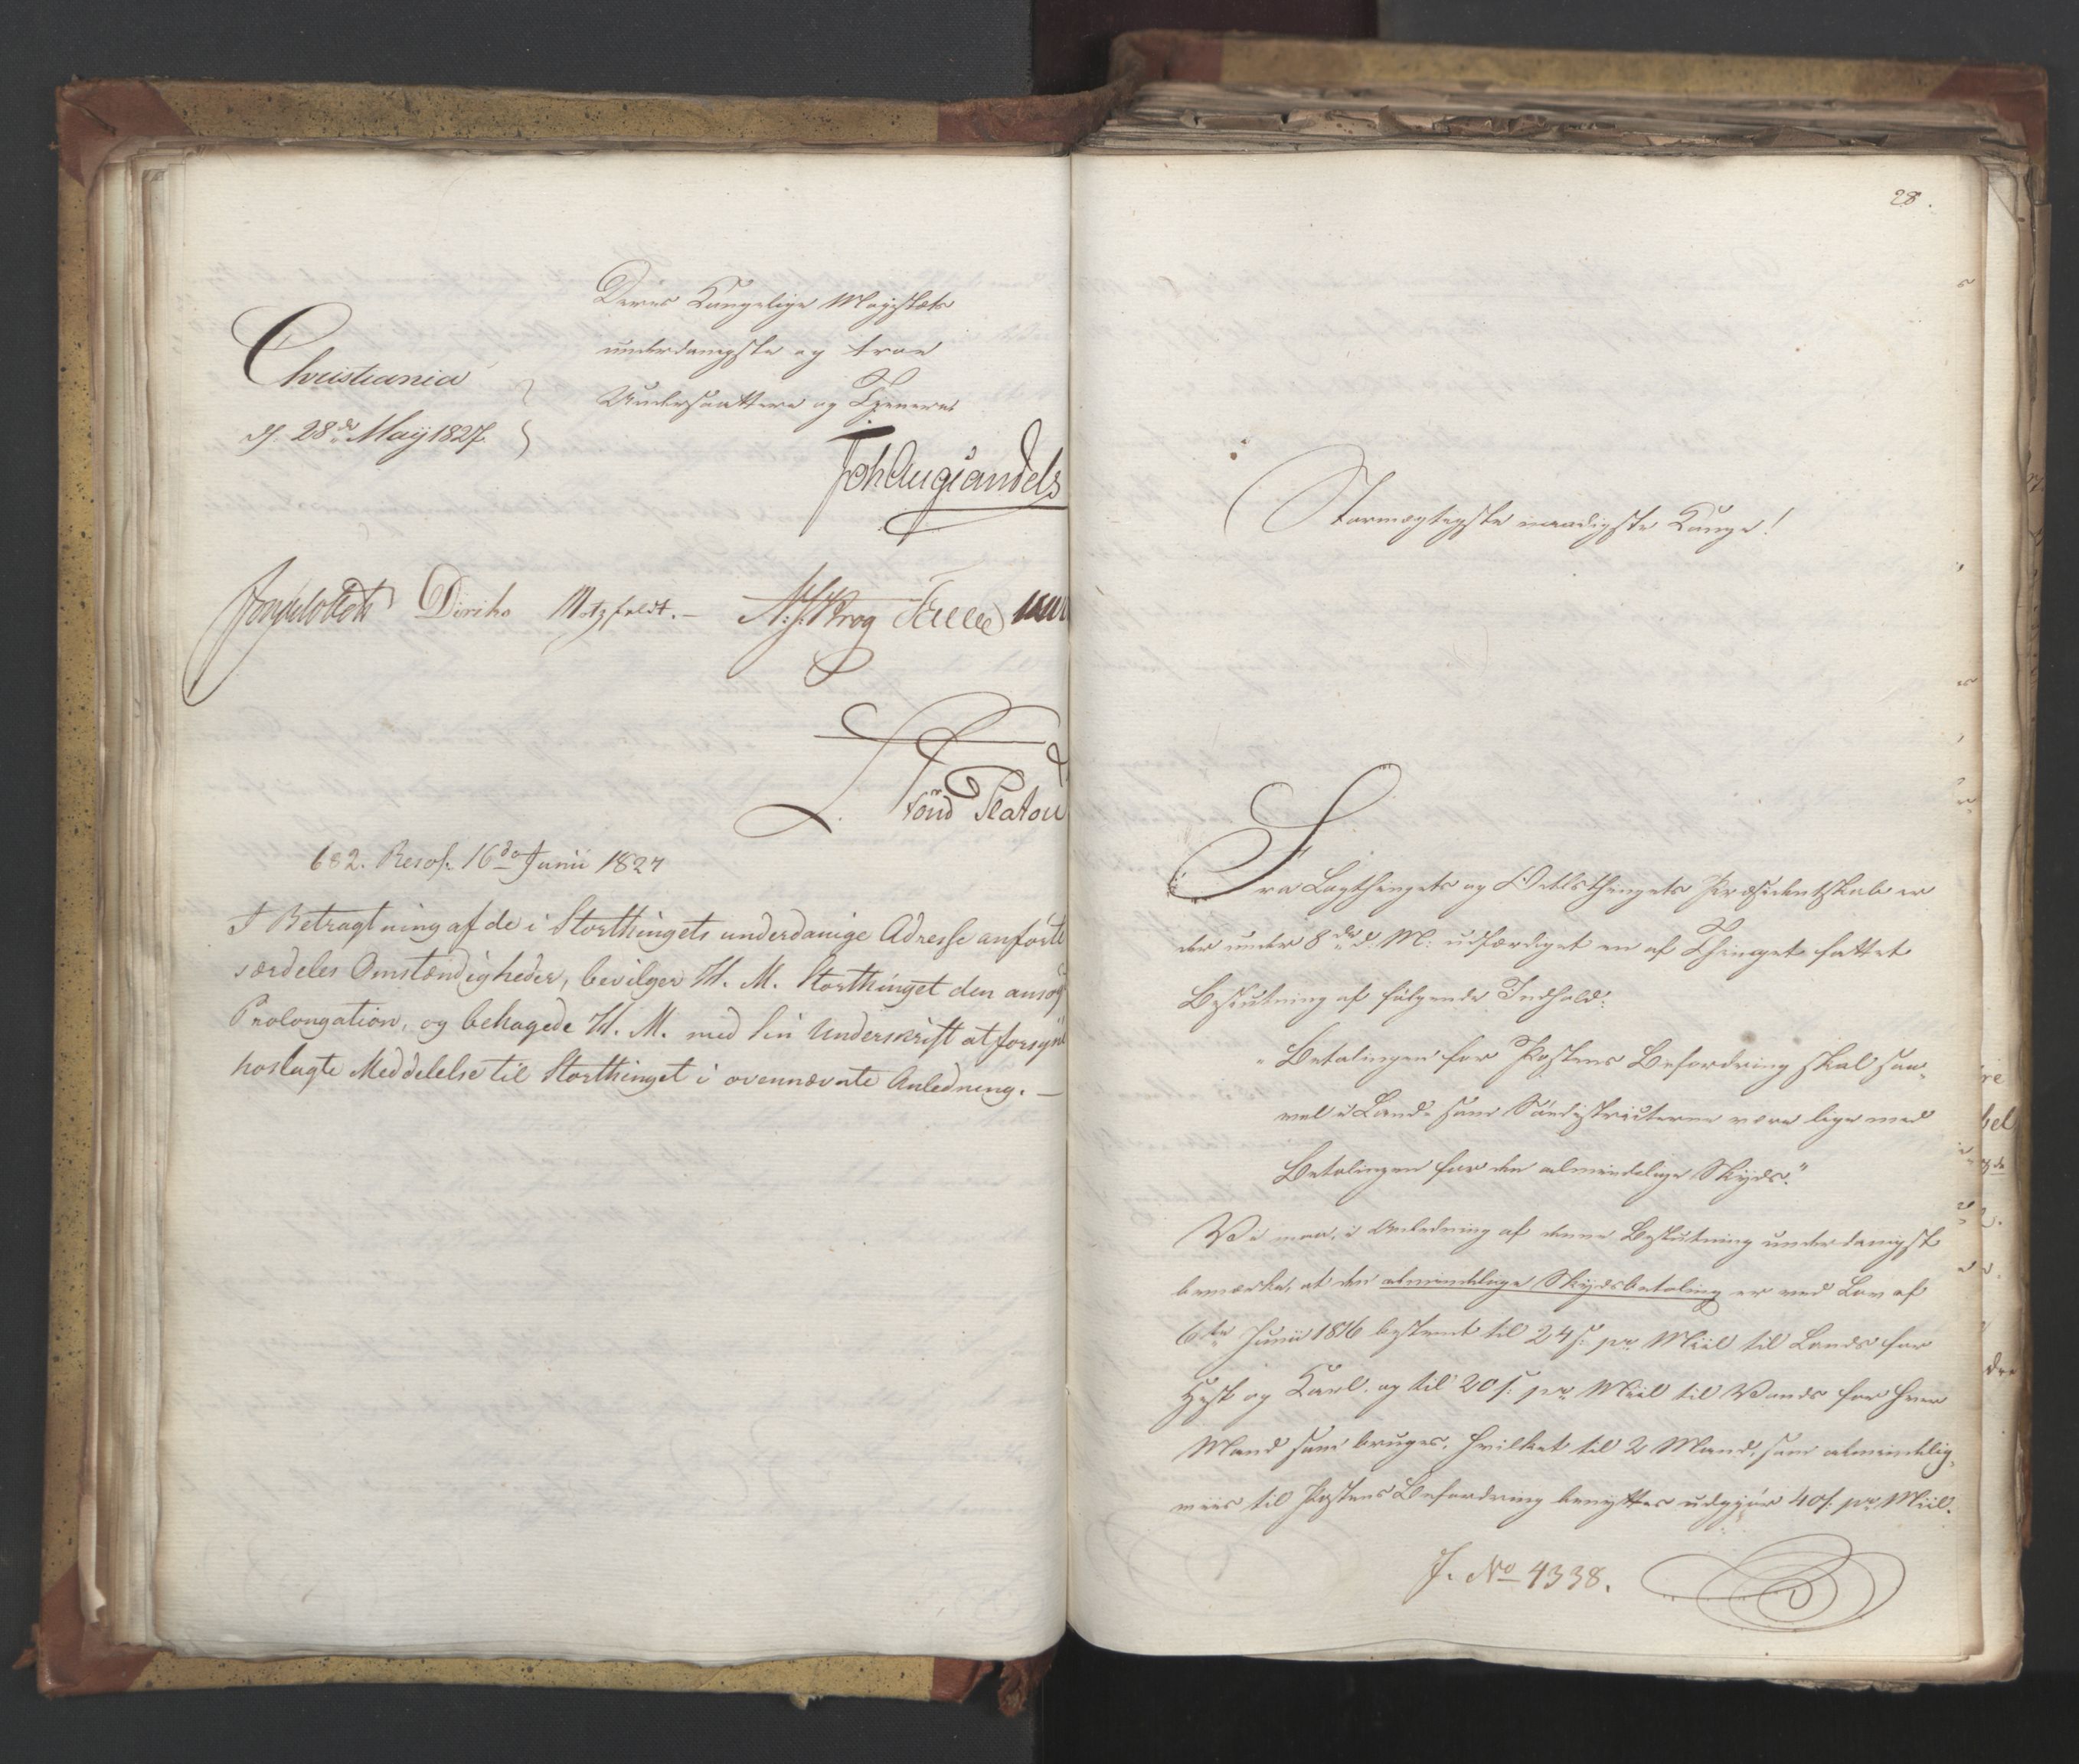 Deres Kongelige Majestæts
underdanigste og troe
Undersaattere og Tjenere
Christiania
d. 28de Maÿ 1827.
Joh Aug Sandels
Jonas Collett Diriks Motzfeldt. — N: J: Krog Fasting
Trond Platou
682. Resol: 16de Junii 1827
I Betragtning af de i Storthingets underdanige Adresse anförte
særdeles Omstændigheder, bevilger H. M. Storthinget den ansøg
Prolongation, og behagede H. M. med sin Underskrift at forsyne
hoslagte Meddelelse til Storthinget i ovennævnte Anledning. —
28.
Stormægtigste naadigste Konge!
Fra Lagthingets og Odelsthingets Præsidentskab er
der under 8de d. M: udfærdiget en af Thinget fattet
Beslutning af følgende Indhold:
"Betalingen for Postens Befordring skal saa-
vel i Land- som Södistricterne være lige med
Betalingen for den almindelige Skyds."
Vi maa, i Anledning af denne Beslutning underdanigst
bemærke, at den almindelige Skydsbetaling er ved Lov af
6te Junii 1816 bestemt til 24 s: pr Miil til Lands for
Hest og Karl, og til 20 s: pr Miil til Vands for hver
Mand som bruges, hvilket til 2 Mand, som almindelig-
viis til Postens Befordring benyttes udgjør 40 s: pr Miil.
J. No 4338.